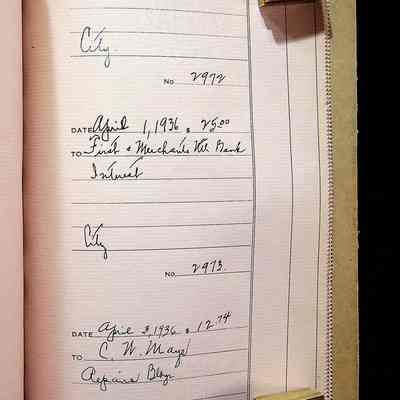 City.
No 2972
DATE April 1, 1936 $ 25.00
TO First & Merchants Natl Bank
Interest
City
No 2973.
DATE April 3, 1936 $ 12.74
TO C. W. Mays
Repairs Bldg.